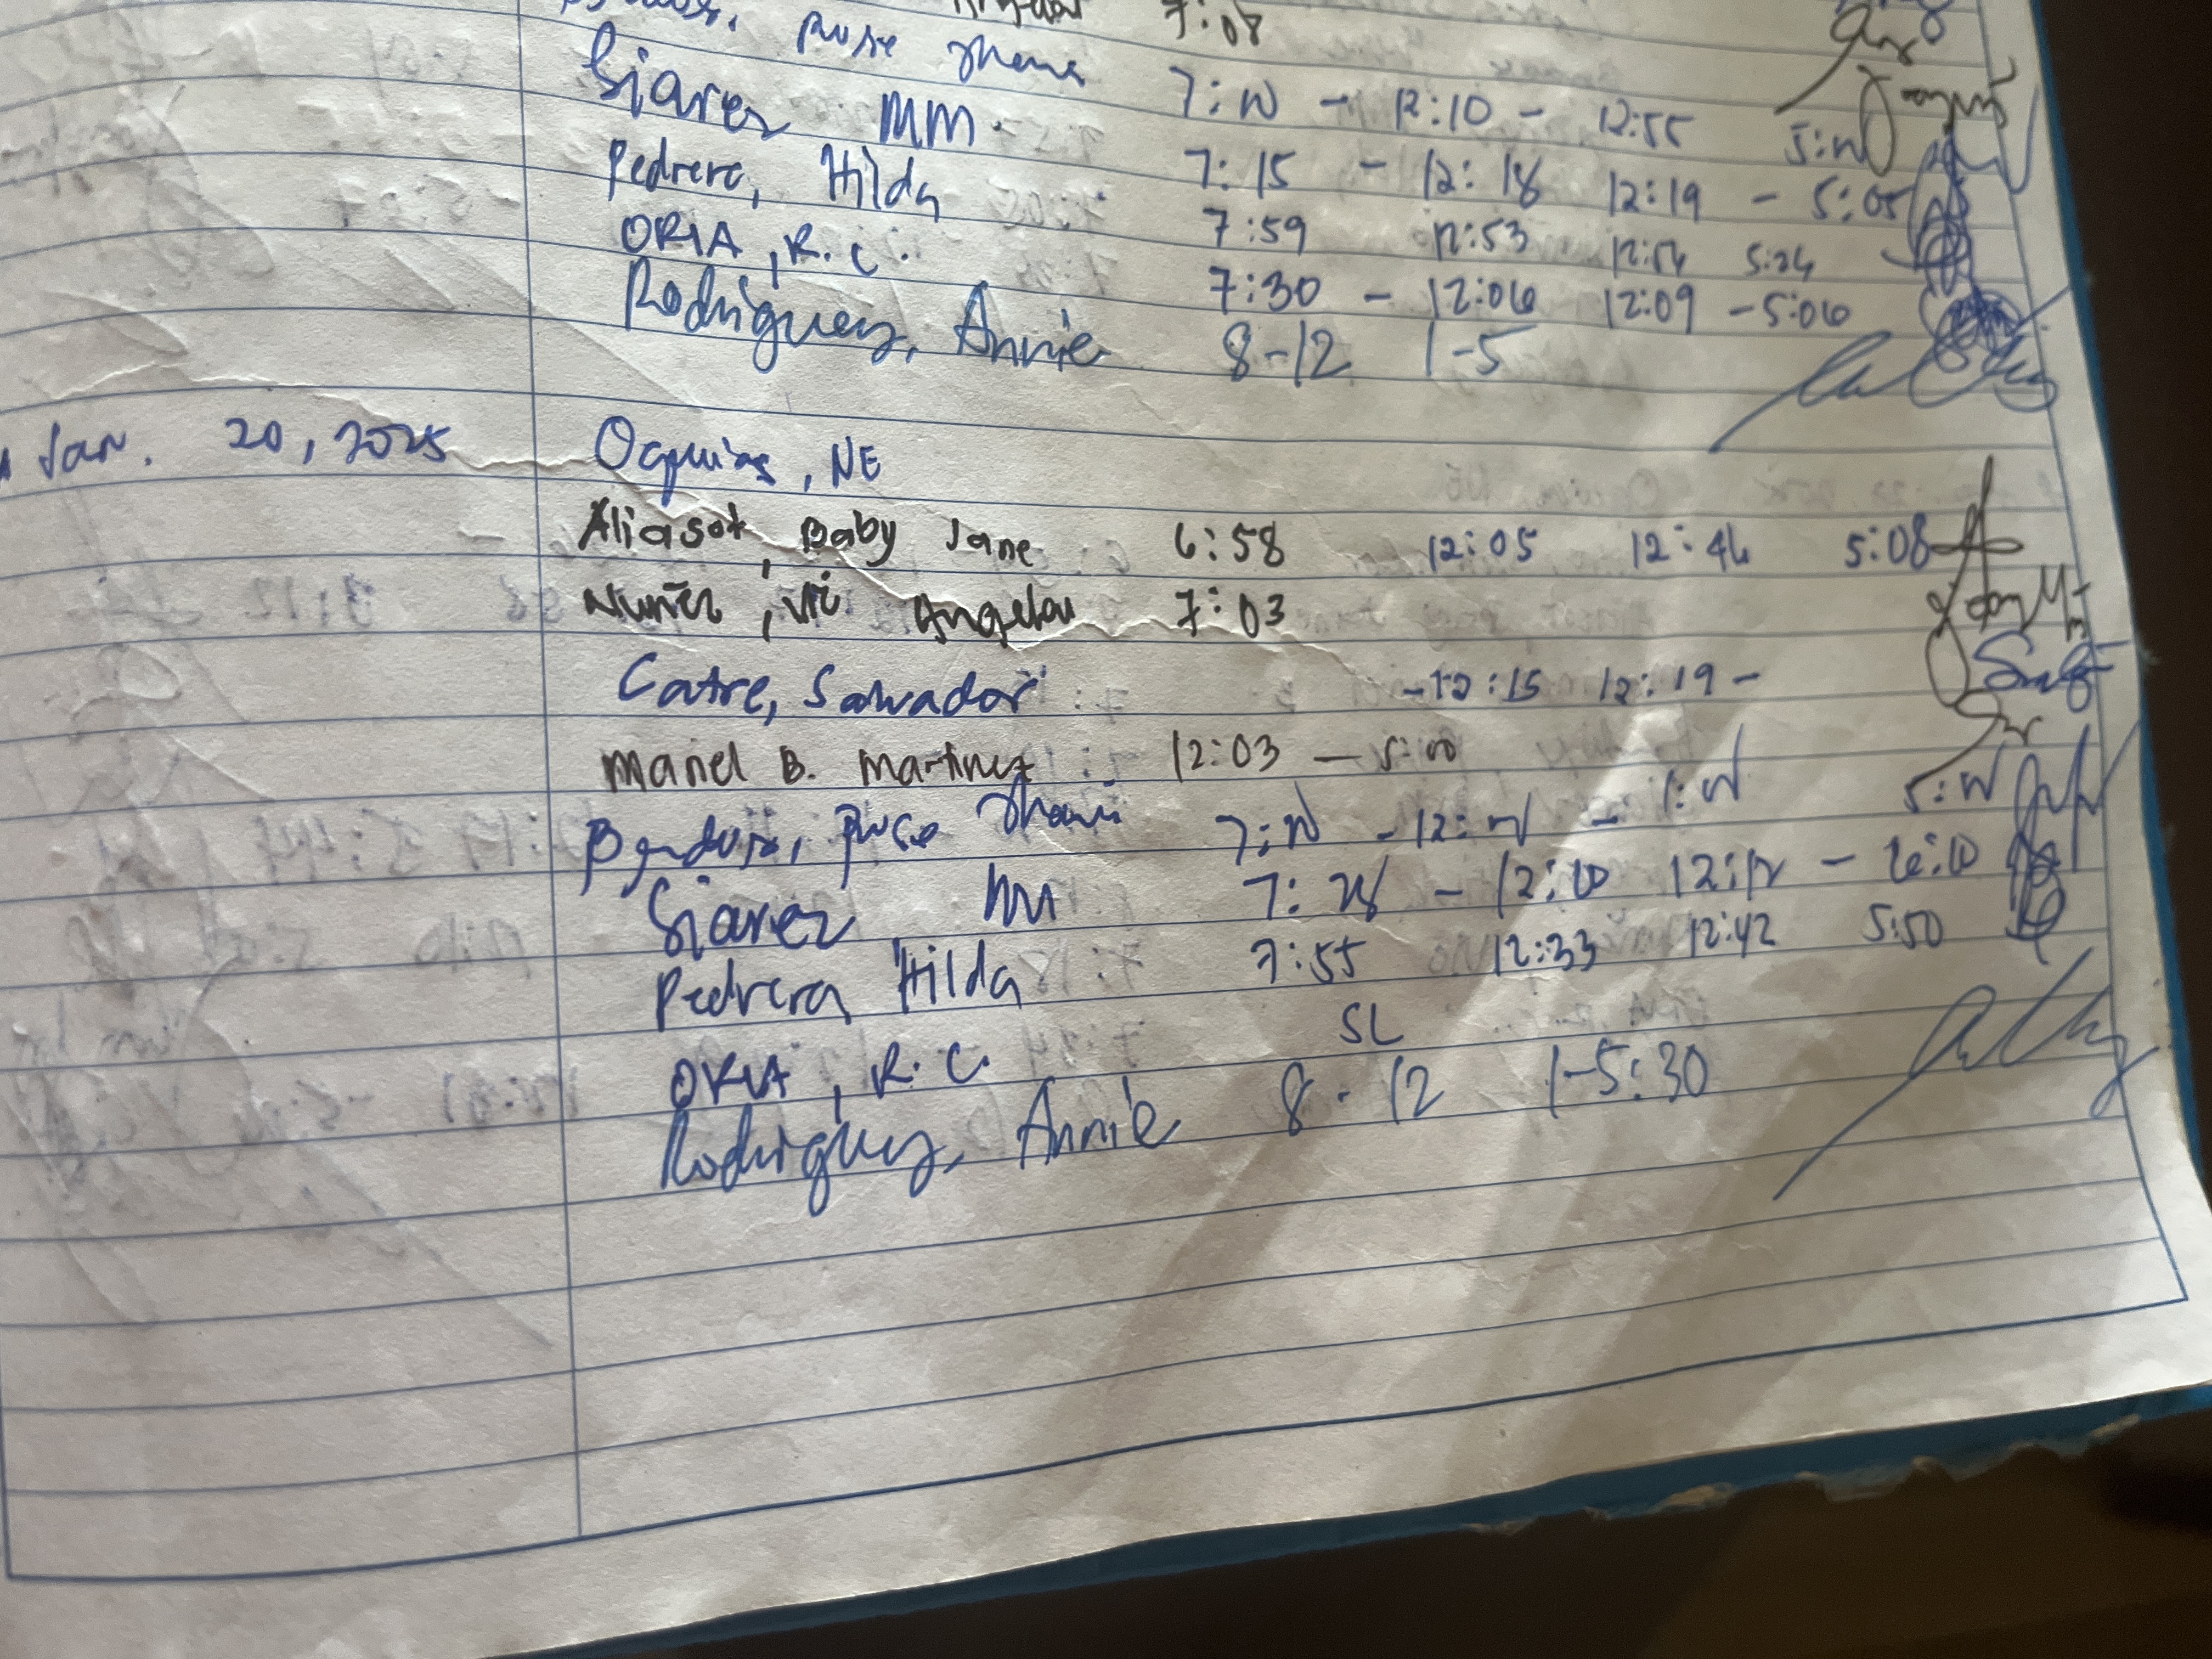 7:08
Rose 7:00 - 12:10 - 12:55 5:00
Siarez MM 7:15 - 12:18 12:19 - 5:05
Pedrera, Hilda 7:59 12:53 12:54 5:24
ORIA, R. C. 7:30 - 12:06 12:09 - 5:06
Rodriguez, Annie 8-12 1-5
Jan. 20, 2025 Oquias, NE
Aliasot, Baby Jane 6:58 12:05 12:46 5:08
Nuñez, Vic Angelou 7:03
Catre, Salvador - 12:15 12:19 -
Mariel B. Martinez 12:03 — 5:00
Rose 7:00 - 12:00 - 1:00 5:00
Siarez, MM - 12:10 12:12 - 6:10
Pedrera Hilda 7:55 12:33 12:42 5:50
ORIA, R. C. SL
Rodriguez, Annie 8 - 12 1-5:30